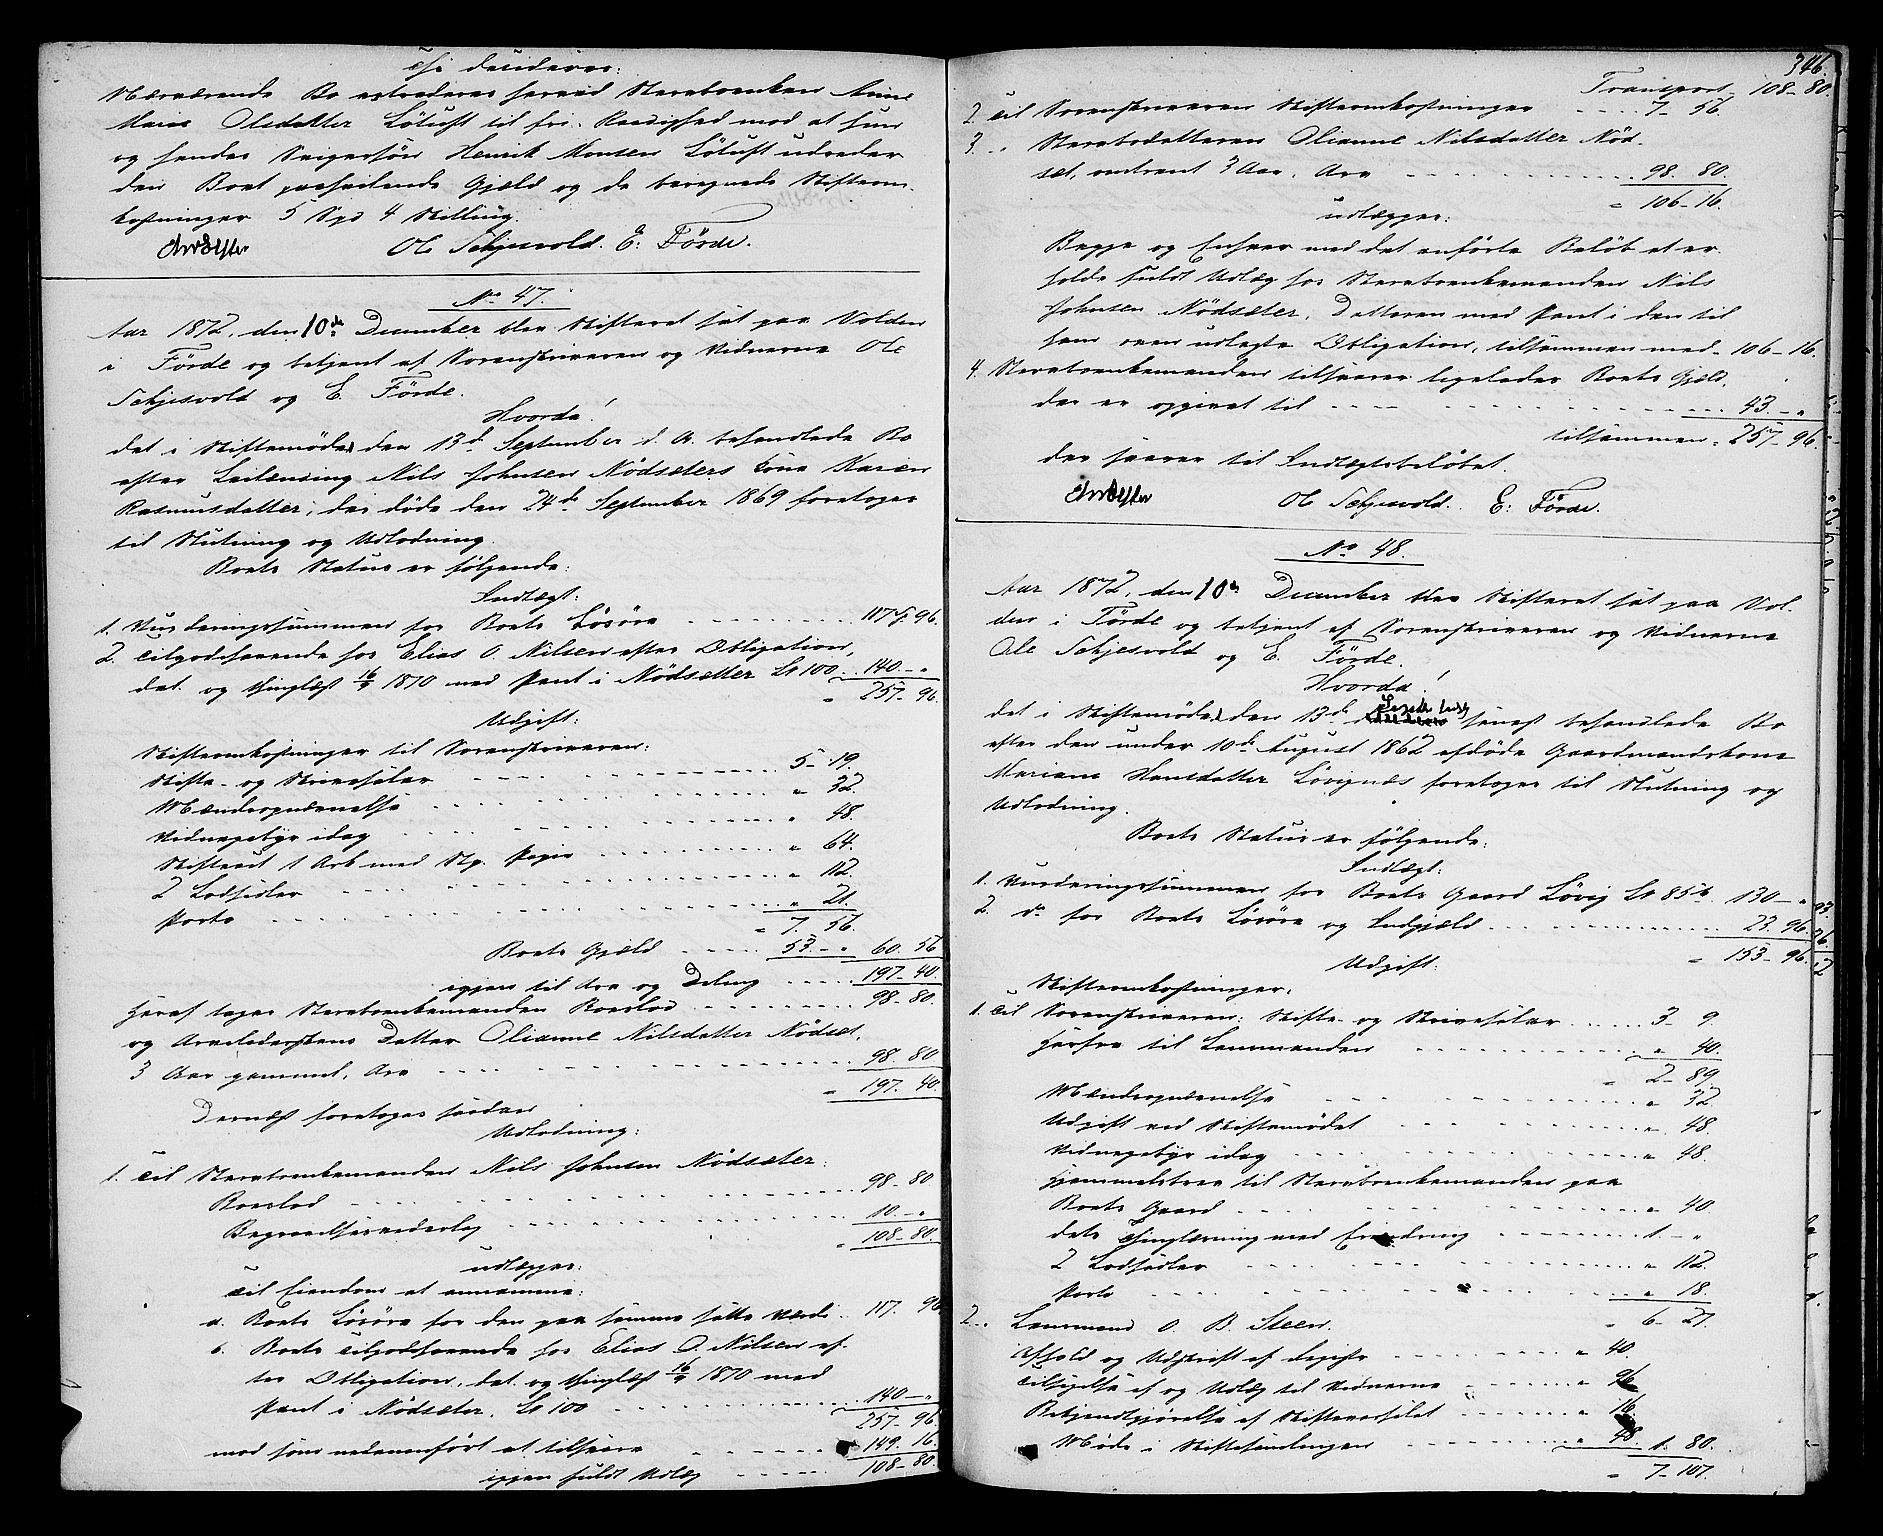 Thi decideres:
Nærværende Bo extraderes herved Stervboenken Anne
Marie Olsdatter Løluft til fri Raadighed mod at hun
og hendes Svigersøn Henrik Monsen Løluft udreder
den Boet paahvilende Gjæld og de beregnede Skifteom-
kostninger 5 Spd 4 Skilling.
Ole Schjesvold. E. Förde.
No 47.
Aar 1872, den 10de December blev Skifteret sat paa Volden
i Förde og betjent af Sorenskriveren og Vidnerne Ole
Schjesvold og E. Förde.
Hvorda!
det i Skiftemöde den 13d September d. A. behandlede Bo
efter Leilending Nils Johnsen Nödseters Kone Karen
Rasmusdatter, der døde den 24de September 1869 foretoges
til Slutning og Udlodning.
Boets Status er følgende:
Indtægt:
1. Vurderingssummen for Boets Løsøre 117 ß 96.
2. Tilgodehavende hos Elias O. Nilsen efter Obligation,
dat. og thinglæst 16/9 1870 med Pant i Nödsetter Lt 100 140 - "
" 257 - 96.
Udgift:
Skifteomkostninger til Sorenskriveren:
Skifte- og Skrivesalær 5 - 19.
Mændsopnævnelse " 32.
Vidnegebyr idag " 48.
Skifteud 1 Ark med St. Papir " 64.
2 Lodsedler " 112.
Porto " 21.
" 7. 56.
Boets Gjæld 53. - " 60. 56
igjen til Arv og Deling 197 - 40.
Heraf tager Stervboenkemanden Boeslod 98 - 80.
og Arveladerskens Datter Olianne Nilsdatter Nödset,
3 Aar gammel, Arv 98. 80
" 197. 40.
Dernæst foretoges saadan
Udlodning:
1. Til Stervboenkemanden Nils Johnsen Nödseter:
Boeslod 98 - 80
Begravelsesvederlag 10. - "
" 108 - 80.
udlægges:
Til Eiendom at annamme:
a. Boets Løsøre for den paa samme satte Værdi 117. 96
b. Boets Tilgodehavende hos Elias O. Nilsen ef-
ter Obligation, dat. og thinglæst 16/9 1870 med
Pant i Nödseter, Lt 100 140 - "
257 - 96.
mod som nedenanført at tilsvare 149. 16.
igjen fuldt Udlæg 108 - 80.
346.
Transport 108 - 80.
2. Til Sorenskriveren Skifteomkostninger 7 - 56.
3. " Stervbodatteren Olianne Nilsdatter Nöd-
set, omtrent 3 Aar, Arv 98. 80.
" 106 - 16.
udlægges:
Begge og Enhver med det anførte Beløb at er-
holde fuldt Udlæg hos Stervboenkemanden Nils
Johnsen Nödseter, Datteren med Pant i den til
ham oven udlagte Obligation, tilsammen med " 106 - 16.
4. Stervboenkemanden tilsvarer ligeledes Boets Gjæld,
der er opgivet til 43 - "
tilsammen " 257 - 96.
der svarer til Indtægtsbeløbet.
Ole Schjesvold. E. Förde.
No 48.
Aar 1872, den 10de December blev Skifteret sat paa Vol-
den i Förde og betjent af Sorenskriveren og Vidnerne
Ole Schjesvold og E. Förde.
Hvorda!
det i Skiftemöde den 13de senest behandlede Bo
efter den under 10de August 1862 afdøde Gaardmandskone
Mariane Hansdatter Lövignæs foretoges til Slutning og
Udlodning.
Boets Status er følgende:
Indtægt:
1. Vurderingssummen for Boets Gaard Lövig Lt 85b 130 - "
2. do for Boets Løsøre og Indgjæld 23. 96.
" 153 - 96.
Udgift:
Skifteomkostninger.
1. Til Sorenskriveren: Skifte- og Skrivesalær 3 - 9.
Herfra til Lensmanden " 40.
" 2 - 89.
Mændsopnævnelse " 32.
Udgift ved Skiftemødet " 48.
Vidnegebyr idag " 48.
Hjemmelsbrev til Stervboenkemanden paa
Boets Gaard " 40.
dets Thinglæsning med Erindring 1 - "
2 Lodsedler " 112.
Porto " 18.
" 6 - 27.
2. " Lensmand O. B. Steen.
Afhold og Udskrift af Register " 40.
Tilsigelse af og Udlæg til Vidnerne " 96
Bekjendtgjørelse af Skiftevæsenet " 16
Møde i Skiftesamlingen " 48. 1. 80.
" 7 - 107.